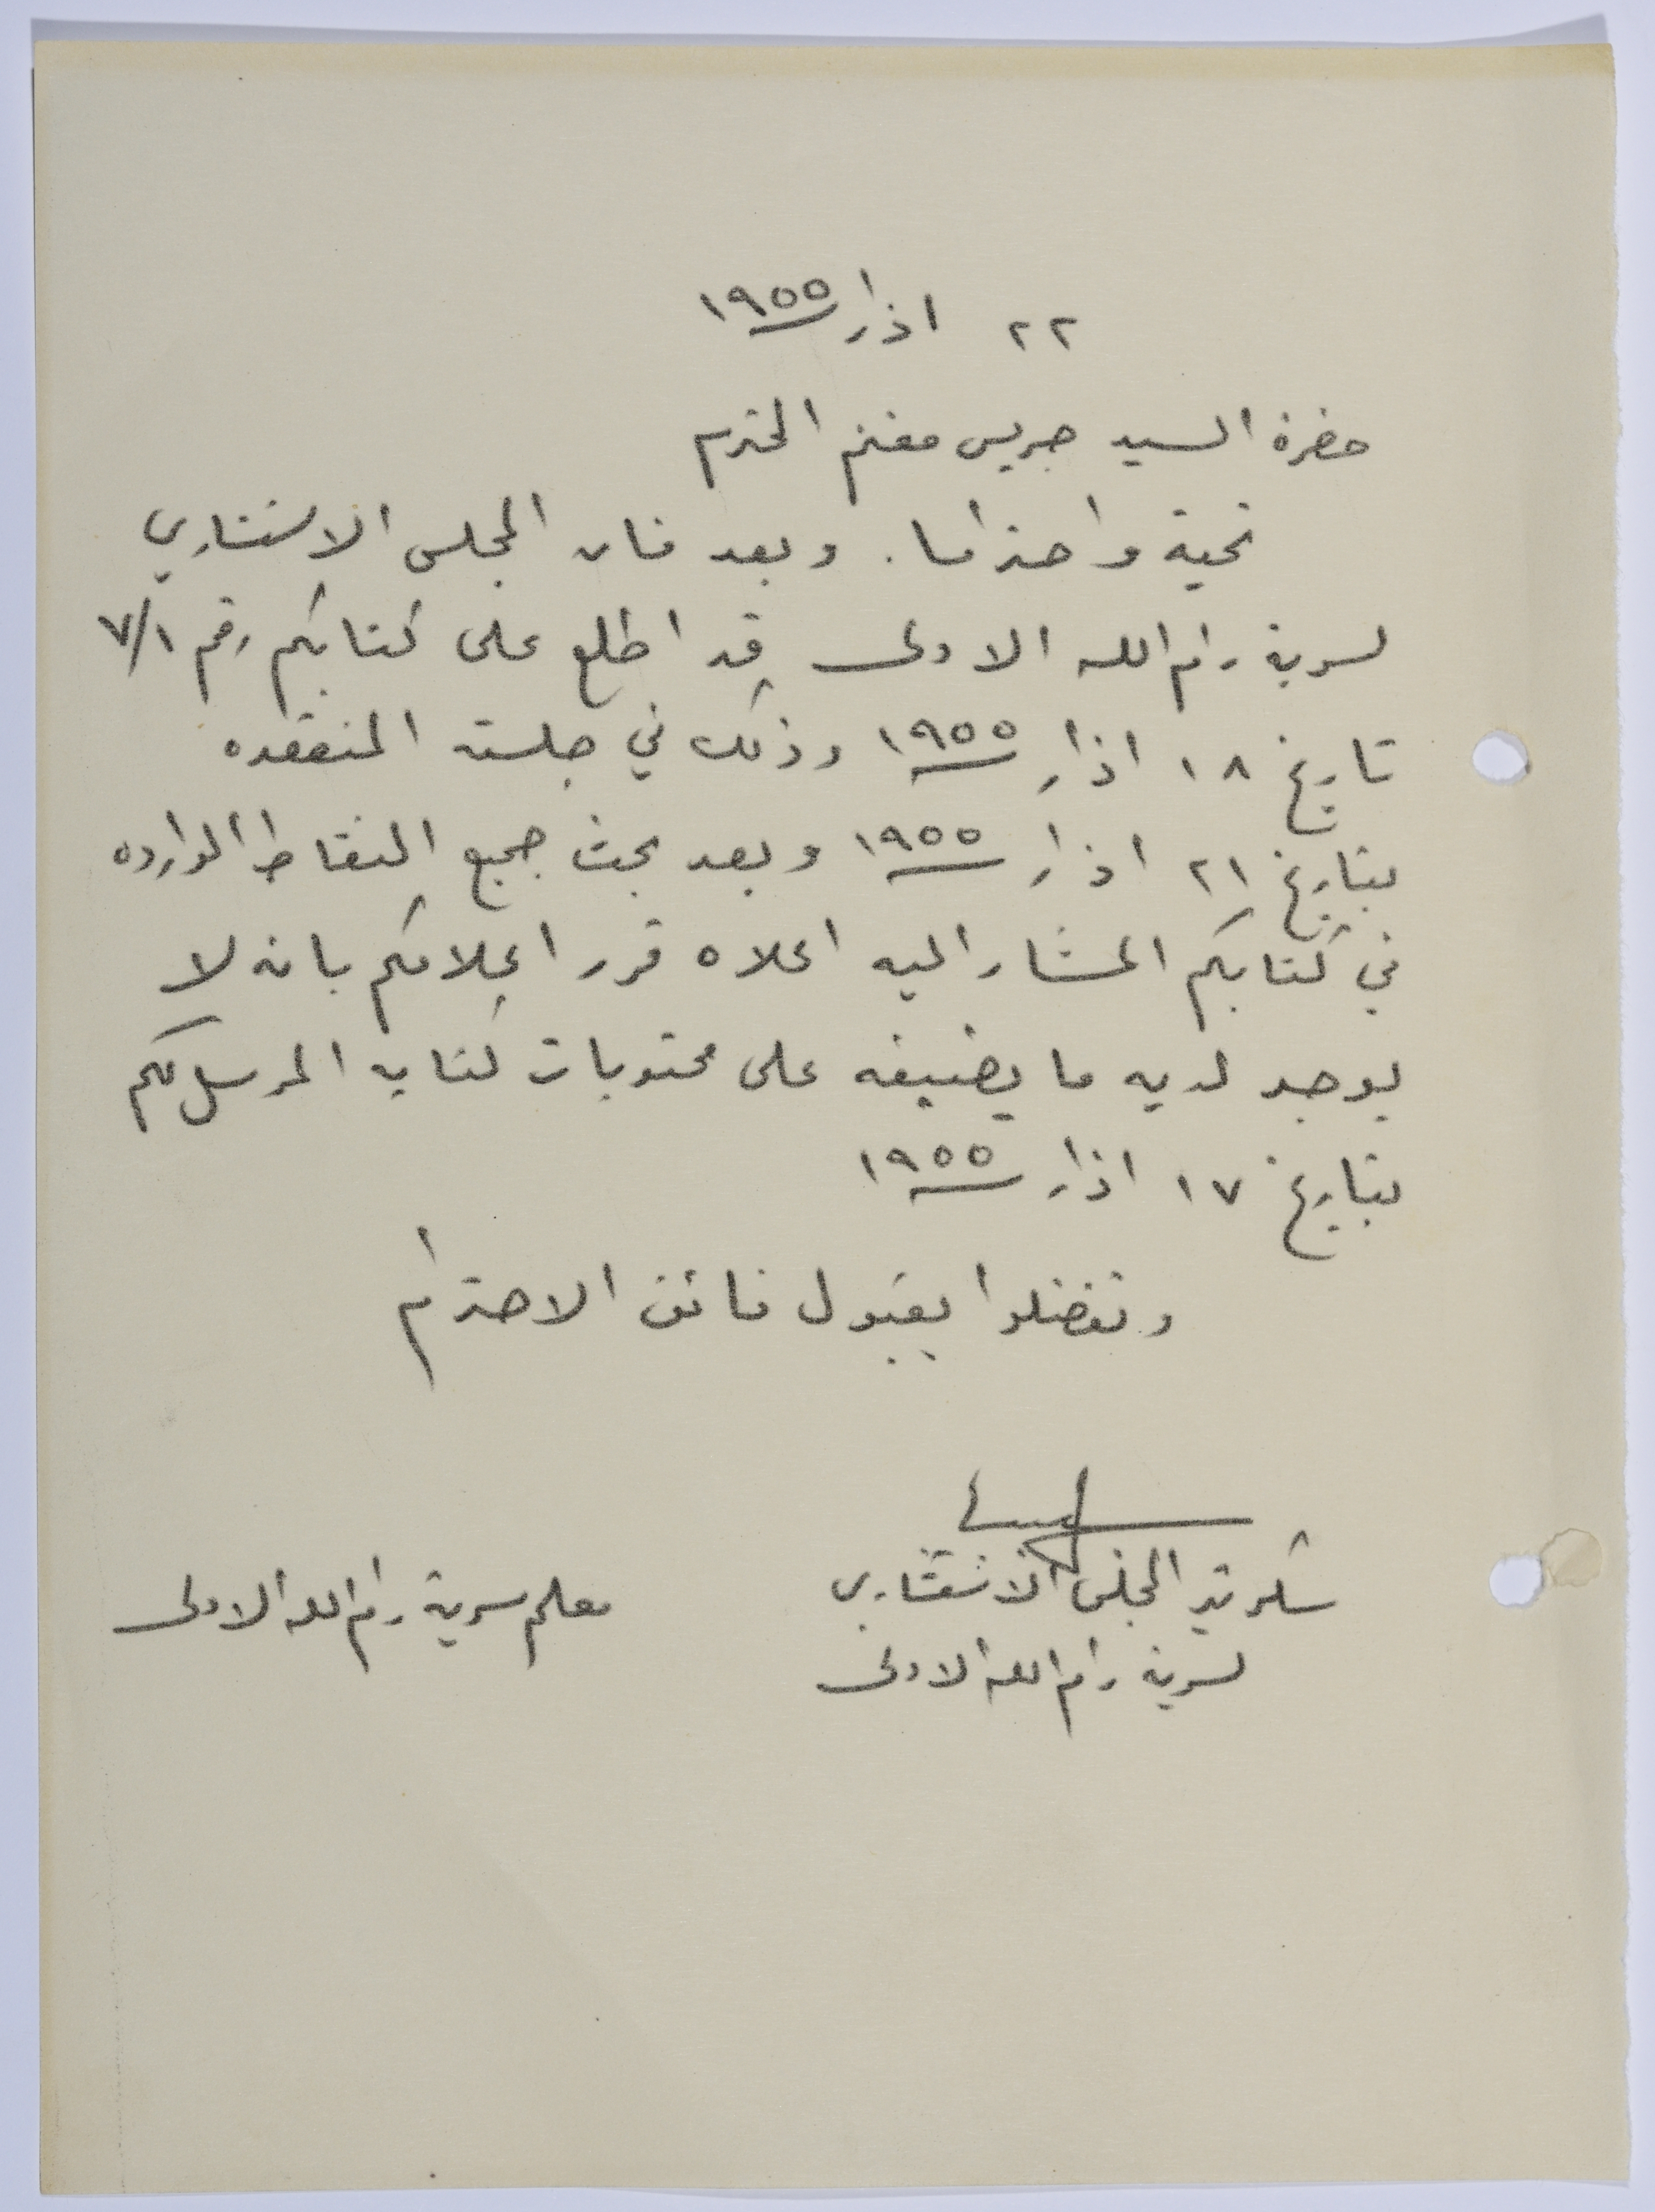 ٢٢ اذار ١٩٥٥
حضرة السيد جريس مغنم المحترم
تحية واحتراما. وبعد فان المجلس الاستشاري
لسرية رام الله الاولى قد اطلع على كتابكم رقم ٧/١
تاريخ ١٨ اذار ١٩٥٥ وذلك في جلسته المنعقده
بتاريخ ٢١ اذار ١٩٥٥ وبعد بحث جميع النقاط الوارده
في كتابكم المشار اليه اعلاه قرر اعلامكم بانه لا
يوجد لديه ما يضيفه على محتويات كتابه المرسل لكم
بتاريخ ١٧ اذار ١٩٥٥
وتفضلوا بقبول فائق الاحترام
سكرتير المجلس الاستشاري
لسرية رام الله الاولى
معلم سرية رام الله الاولى